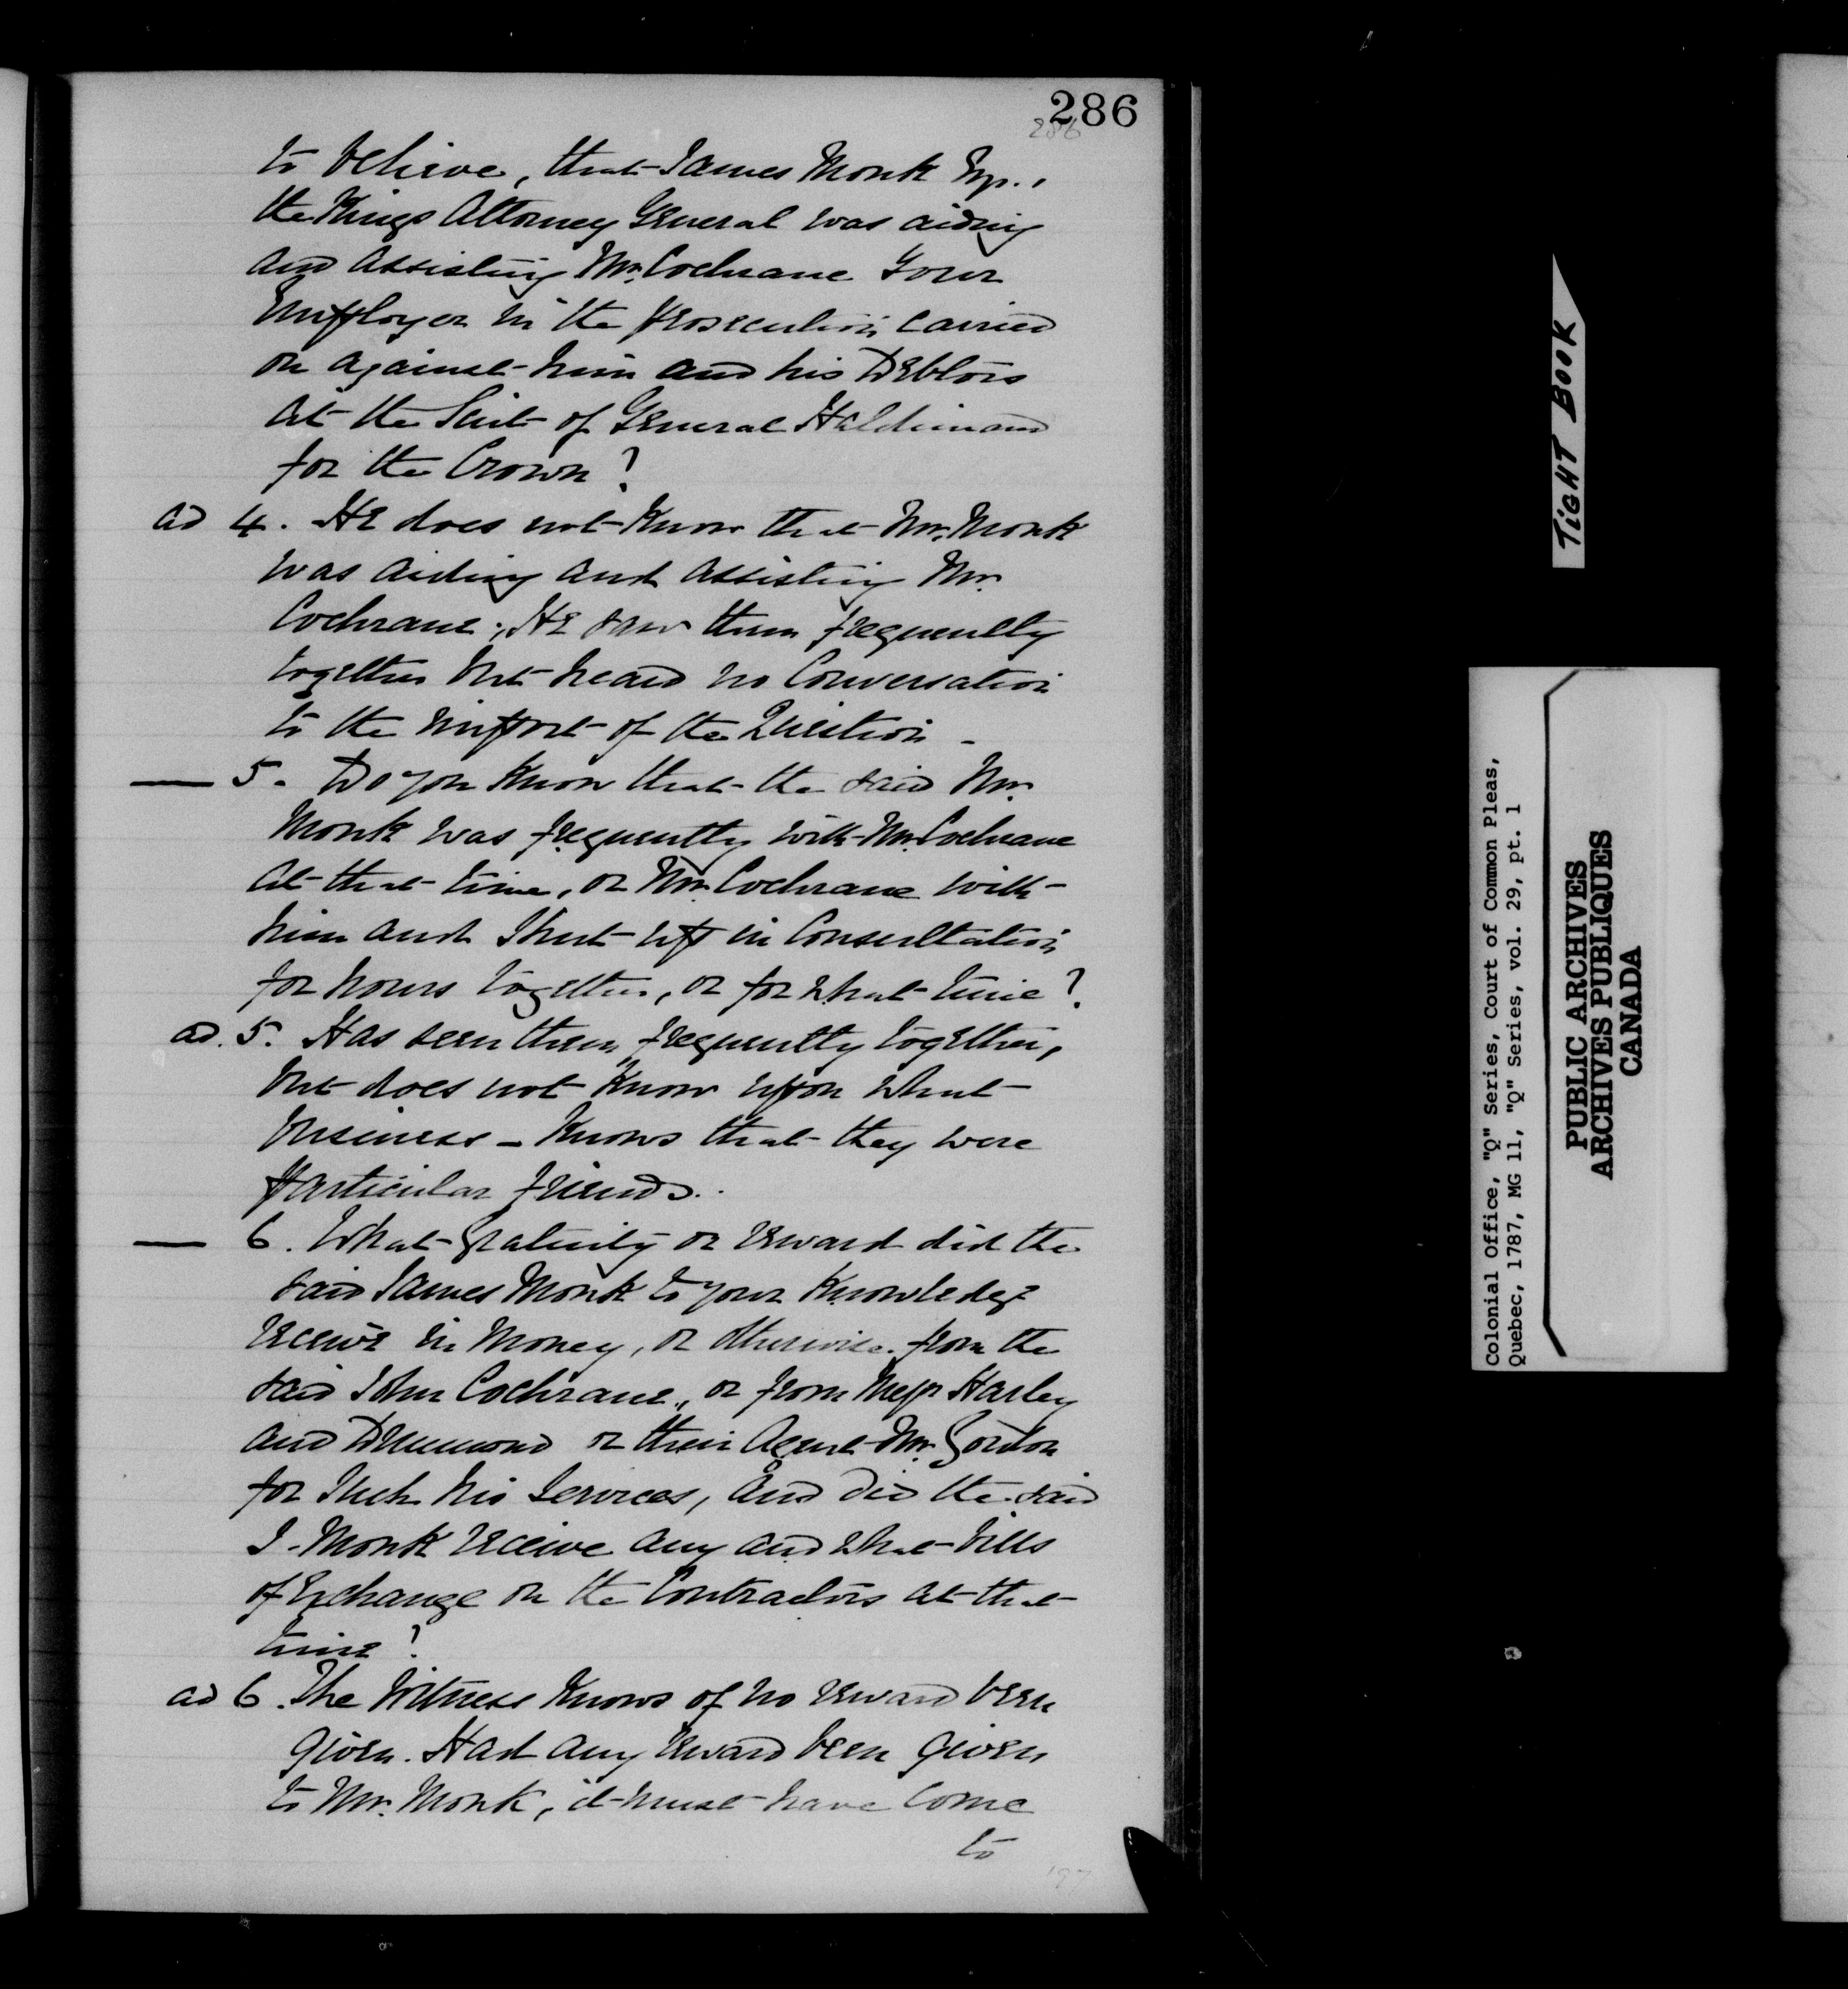 286
286
to believe, that James Monk Esq.,
the Kings Attorney General was aiding
and assisting Mr. Cochrane Your
Employer in the prosecution carried
on against him and his Debtors
at the Suit of General Haldimand
for the Crown?
ad 4. He does not Know that Mr. Monk
was aiding and assisting Mr.
Cochrane; He saw them frequently
together but heard no Conversation
to the import of the Question -
— 5. Do you Know that the said Mr.
Monk was frequently with Mr. Cochrane
at that time, or Mr. Cochrane with
him and Shut up in Consultation
for hours together, or for what time?
ad. 5. Has seen them frequently together,
but does not Know upon what
business - Knows that they were
particular friends.
— 6. What Gratuity or reward did the
said James Monk to your Knowledge
receive in Money, or otherwise from the
said John Cochrane, or from Messrs Harley
and Drummond or their Agent Mr. Gordon
for Such his Services, and did the said
J. Monk receive any and what bills
of Exchange on the Contractors at that
time?
ad 6. The Witness Knows of no reward been
given. Had any reward been given
to Mr. Monk, it must have come
to
197
TIGHT BOOK
Colonial Office, "Q" Series, Court of Common Pleas,
Quebec, 1787, MG 11, "Q" Series, vol. 29, pt. 1
PUBLIC ARCHIVES
ARCHIVES PUBLIQUES
CANADA